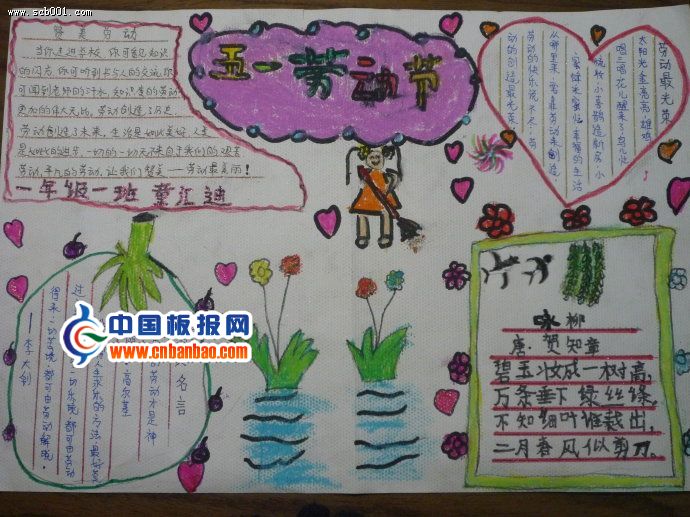 www.scb001.com
五一劳动节
赞美劳动
当你走进学校,你可看见知识
的闪方,你可听到书与人的交流,你
可闻到老师的汗水,知识是的劳动
更加的伟大无比,劳动创造了历史
劳动创造了未来,生活是如此美好,人生
劳动,平凡的劳动,让我们赞美——劳动最美丽!
一年级一班 董汇迪
劳动最光荣
太阳光金亮亮,雄鸡
唱三唱,花儿醒来了,鸟儿忙
梳妆,小喜鹊造新房,小
蜜蜂采蜜忙,幸福的生活
从哪里来,要靠劳动来创造,
劳动的快乐说不尽,劳
动的创造最光荣
名言
劳动才是神
高尔基
求乐的方法,最好莫
一切乐境,都可由劳动
得来,一切苦境,都可由劳动解脱。
——李大钊
中国板报网
www.cnbanbao.com
咏柳
唐:贺知章
碧玉妆成一树高,
万条垂下绿丝绦,
不知细叶谁裁出,
二月春风似剪刀。